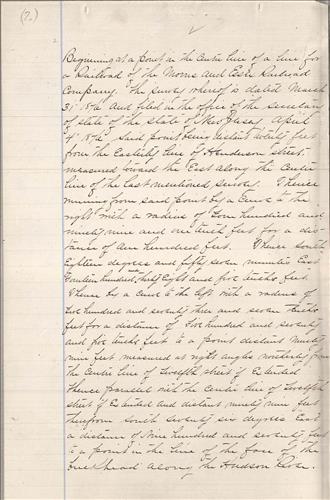 (7.)
Beginning at a point in the centre line of a line for
a Railroad of the Morris and Essex Railroad
Company. The survey whereof is dated March
31st and filed in the office of the Secretary
of state of the state of New Jersey April
4th said point being distant ninety feet
from the Easterly line of Henderson street
measured toward the East along the Centre
line of the last mentioned survey. Thence
running from said point by a curve to the
right with a radius of four hundred and
ninety nine and one tenth feet for a dis-
tance of one hundred feet. Thence South
Eighteen degrees and fifty seven minutes East
Fourteen hundred and thirty Eight and five tenths feet
Thence by a curve to the left with a radius of
two hundred and seventy three and seven tenths
feet for a distance of two hundred and seventy
and five tenths feet to a point distant ninety
nine feet measured at right angles northerly from
the Centre line of twelfth street if Extended
Thence parallel with the centre line of twelfth
street if Extended and distant ninety nine feet
therefrom South seventy six degrees East
a distance of Nine hundred and seventy feet
to a point in the line of the face of the
bulkhead along the Hudson River.